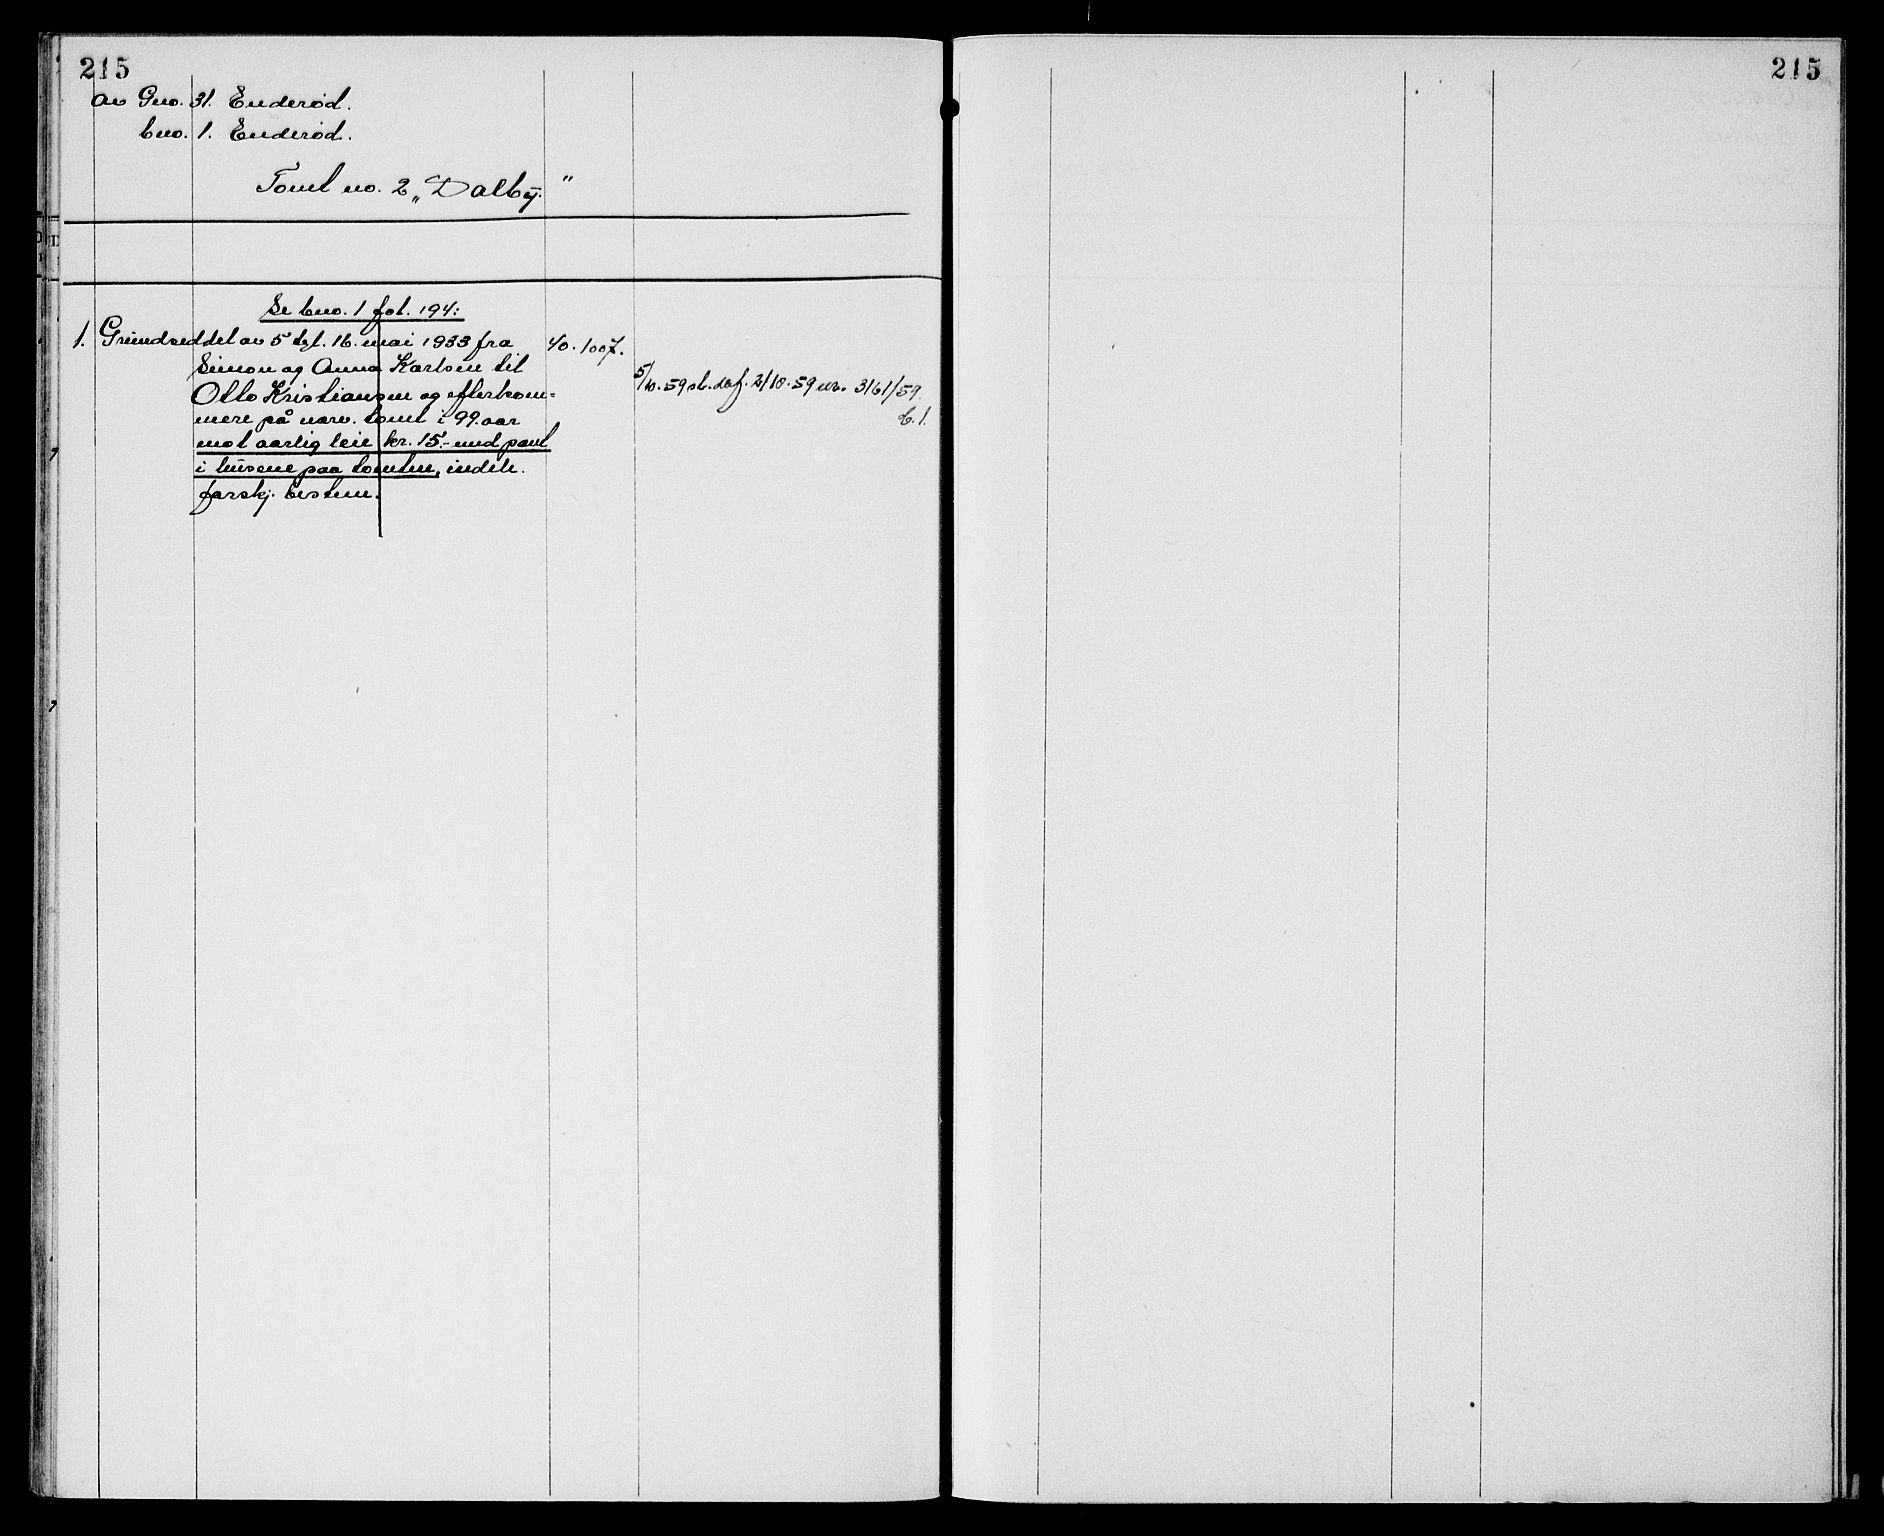 215
215
av Gno. 31. Enderød.
bno. 1. Enderød.
Tomt no. 2 „Dalby."
Se bno. 1 fol. 194:
1. Grundseddel av 5 tgl. 16. mai 1933 fra
40. 1007.
Simon og Anna Karlsen til
Otto Kristiansen og efterkom-
mere på nævn. tomt i 99 aar
mot aarlig leie kr. 15.- med pant
i husene paa tomten, indeh.
forskj. bestem.
5/10.59 sl. def. 2/10.59 nr. 3161/59.
b.1.